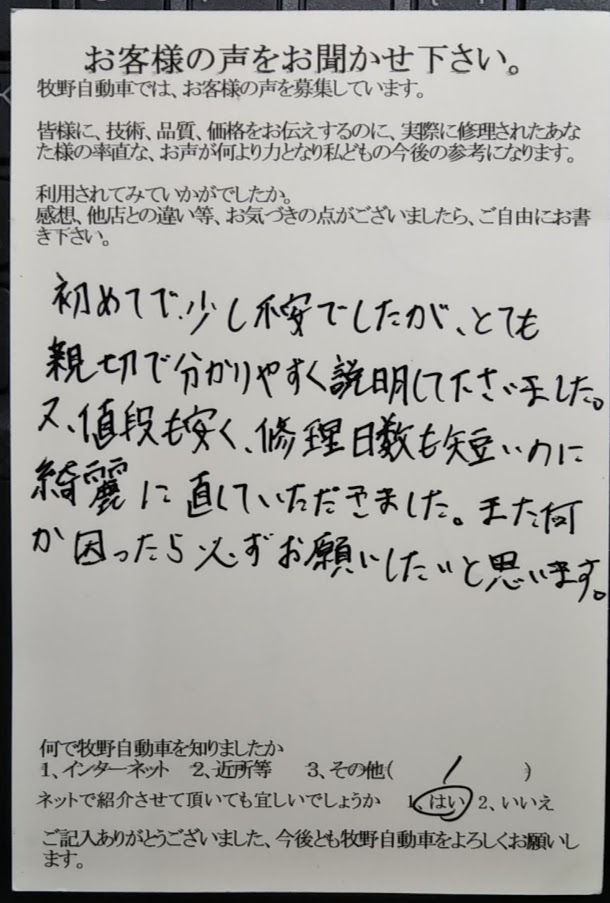 お客様の声をお聞かせ下さい。
牧野自動車では、お客様の声を募集しています。
皆様に、技術、品質、価格をお伝えするのに、実際に修理されたあな
た様の率直な、お声が何より力となり私どもの今後の参考になります。
利用されてみていかがでしたか。
感想、他店との違い等、お気づきの点がございましたら、ご自由にお書
き下さい。
初めてで、少し不安でしたが、とても
親切で分かりやすく説明して下さいました。
又、値段も安く、修理日数も短いのに
綺麗に直していただきました。また何
か困ったら必ずお願いしたいと思います。
何で牧野自動車を知りましたか
1、インターネット 2、近所等 3、その他( / )
ネットで紹介させて頂いても宜しいでしょうか 1、はい 2、いいえ
ご記入ありがとうございました、今後とも牧野自動車をよろしくお願いし
ます。